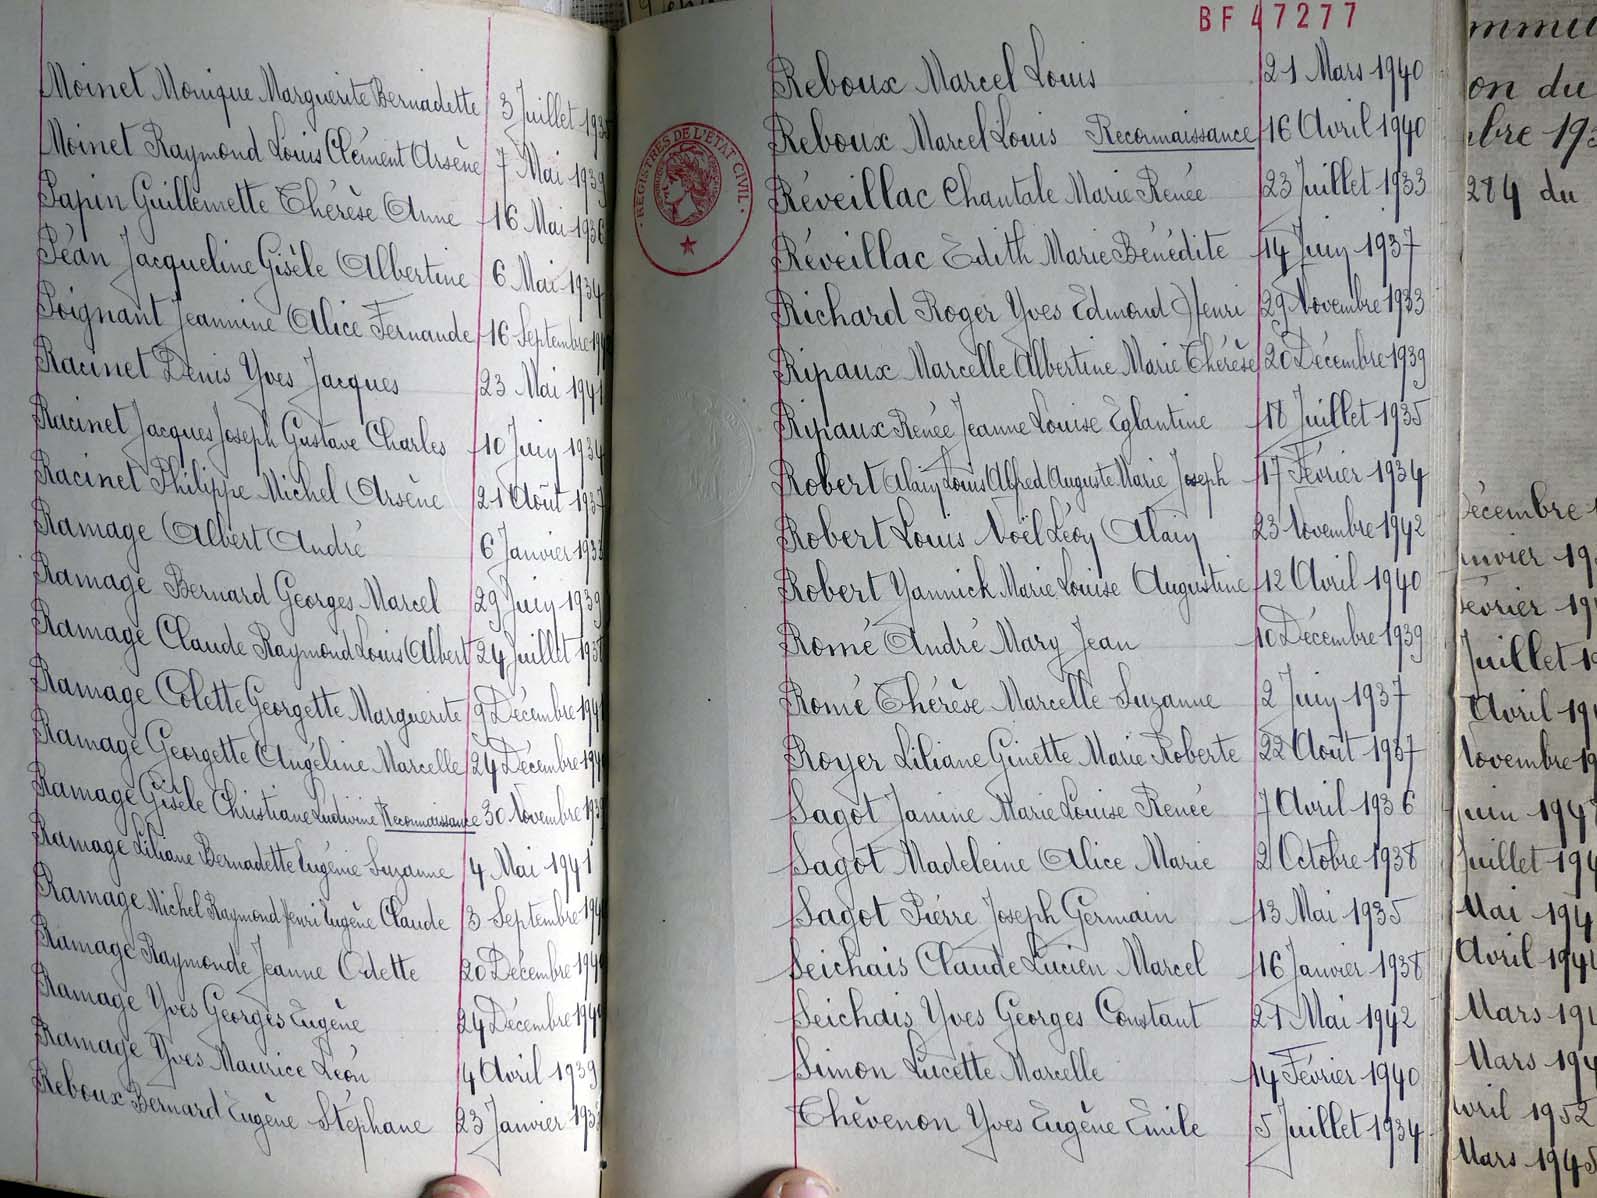 Moinet Monique Marguerite Bernadette 3 Juillet
Moinet Raymond Louis Clément Arsène 7 Mai 1939
Papin Guillemette Thérèse Anne 16 Mai 1936
Péan Jacqueline Gisèle Albertine 6 Mai 1934
Poignant Jeannine Alice Fernande 16 Septembre
Racinet Denis Yves Jacques 23 Mai 1941
Racinet Jacques Joseph Gustave Charles 10 Juin 1934
Racinet Philippe Michel Arsène 21 Août 1937
Ramage Albert André 6 Janvier
Ramage Bernard Georges Marcel 29 Juin 1939
Ramage Claude Raymond Louis Albert 24 Juillet
Ramage Colette Georgette Marguerite 9 Décembre
Ramage Georgette Angéline Marcelle 24 Décembre
Ramage Gisèle Christiane Ludivine Reconnaissance 30 Novembre
Ramage Liliane Bernadette Eugénie Suzanne 4 Mai 1941
Ramage Michel Raymond Henri Eugène Claude 3 Septembre
Ramage Raymonde Jeanne Odette 20 Décembre
Ramage Yves Georges Eugène 24 Décembre
Ramage Yves Maurice Léon 4 Avril 1939
Reboux Bernard Eugène Stéphane 23 Janvier
BF 47277
REGISTRES DE L'ETAT CIVIL
Reboux Marcel Louis 21 Mars 1940
Reboux Marcel Louis Reconnaissance 16 Avril 1940
Réveillac Chantale Marie Renée 23 Juillet 1933
Réveillac Edith Marie Bénédite 14 Juin 1937
Richard Roger Yves Edmond Henri 29 Novembre 1933
Ripaux Marcelle Albertine Marie Thérèse 20 Décembre 1939
Ripaux Renée Jeanne Louise Eglantine 18 Juillet 1935
Robert Alain Louis Alfred Auguste Marie Joseph 17 Février 1934
Robert Louis Noël Léon Alain 23 Novembre 1942
Robert Yannick Marie Louise Augustine 12 Avril 1940
Romé André Mary Jean 10 Décembre 1939
Romé Thérèse Marcelle Suzanne 2 Juin 1937
Royer Liliane Ginette Marie Roberte 22 Août 1937
Sagot Janine Marie Louise Renée 7 Avril 1936
Sagot Madeleine Alice Marie 2 Octobre 1938
Sagot Pierre Joseph Germain 13 Mai 1935
Seichais Claude Lucien Marcel 16 Janvier 1938
Seichais Yves Georges Constant 21 Mai 1942
Simon Lucette Marcelle 14 Février 1940
Thèvenon Yves Eugène Emile 5 Juillet 1934
on du
284 du
Juillet
Avril
Novembre
Juillet 194
Mai 194
Avril 194
Mars 19
Mars 194
1952
Mars 1945